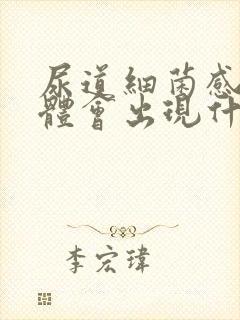 尿道細菌感
體會出現什
李宏瑋